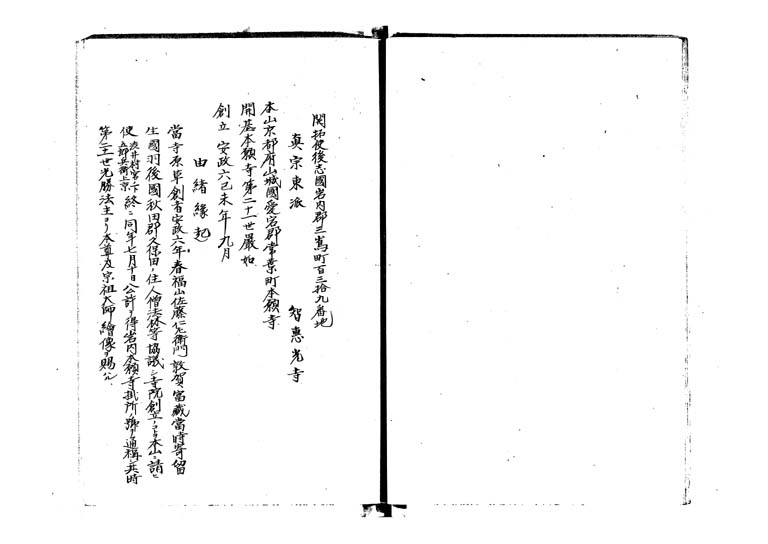 開拓使後志國岩内郡三嶌町百三拾九番地
真宗東派　智惠光寺
本山京都府山城國愛宕郡常葉町本願寺
開基本願寺第二十一世嚴如
創立安政六己未年九月
由緒縁起
當寺原草創者安政六年春福山佐藤仁左衛門敦賀富藏當時寄留
生國羽後國秋田郡久保田ノ住人僧法林等協議シ寺院創立ヲ本山ニ請ヒ
使 五郎兵衛上京 終ニ同年七月十日公許ヲ得岩内本願寺掛所ノ號ヲ通稱ス其時
第二十一世光勝法主ヨリ本尊及宗祖大師繪像ヲ賜ハル